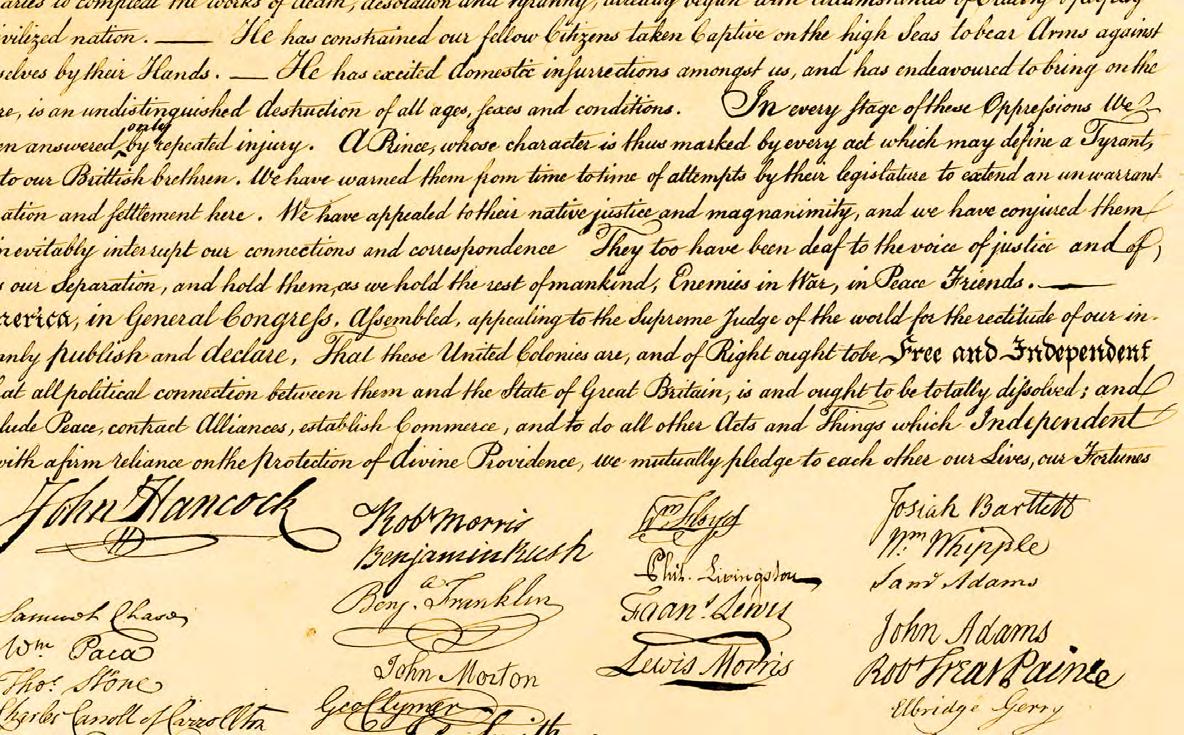 compleat the works of death, desolation and tyranny, already begun with circumstances of
vilized nation. — He has constrained our fellow Citizens taken Captive on the high Seas to bear Arms against
selves by their Hands. — He has excited domestic insurrections amongst us, and has endeavoured to bring on the
re, is an undistinguished destruction of all ages, sexes and conditions. In every stage of these Oppressions We
only
en answered by repeated injury. A Prince, whose character is thus marked by every act which may define a Tyrant,
to our Brittish brethren. We have warned them from time to time of attempts by their legislature to extend an unwarrant-
ation and settlement here. We have appealed to their native justice and magnanimity, and we have conjured them
inevitably interrupt our connections and correspondence They too have been deaf to the voice of justice and of
s our Separation, and hold them, as we hold the rest of mankind, Enemies in War, in Peace Friends. —
merica, in General Congress, Assembled, appealing to the Supreme Judge of the world for the rectitude of our in-
mnly publish and declare, That these United Colonies are, and of Right ought to be Free and Independent
at all political connection between them and the State of Great Britain, is and ought to be totally dissolved; and
lude Peace, contract Alliances, establish Commerce, and to do all other Acts and Things which Independent
with a firm reliance on the protection of divine Providence, we mutually pledge to each other our Lives, our Fortunes
John Hancock
Samuel Chase
Wm Paca
Thos. Stone
Charles Carroll of Carrollton
Robt Morris
Benjamin Rush
Benja. Franklin
John Morton
Geo Clymer
Wm Floyd
Phil. Livingston
Frans. Lewis
Lewis Morris
Josiah Bartlett
Wm Whipple
Saml Adams
John Adams
Robt Treat Paine
Elbridge Gerry